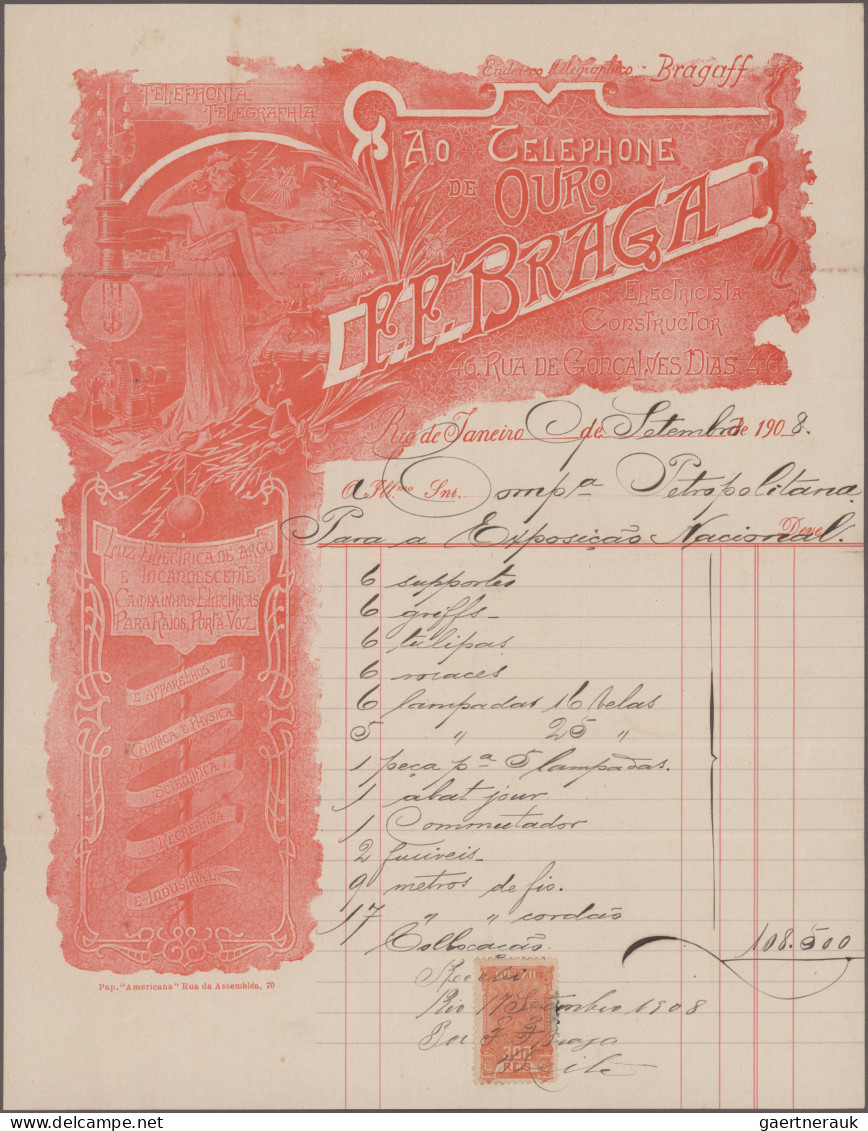 Endereço telegraphico - Bragaff
TELEPHONIA
TELEGRAPHIA
AO TELEPHONE
DE OURO
F.F. BRAGA
ELECTRICISTA
CONSTRUCTOR
46, RUA DE GONÇALVES DIAS 46
Rio de Janeiro de Setembro de 1908.
A Ill.mo Snr. Comp.a Petropolitana
Para a Exposição Nacional. Deve
LUZ ELECTRICA DE ARCO
E INCANDESCENTE
CAMPAINHAS ELECTRICAS
PARA RAIOS, PORTA VOZ
E APPARELHOS DE
CHIMICA E PHYSICA
SCIENTIFICA
RECREATIVA
E INDUSTRIAL
6 supportes
6 griffs-
6 tulipas
6 rosaces
6 lampadas 16 velas
5 " 25 "
1 peça pa 5 lampadas.
1 abat jour
1 Commutador
2 fusiveis-
9 metros de fio.
17 " " cordão
Collocação. 108.500
Recebi
Rio 17 Setembro 1908
Por F. F. Braga
300
REIS
Pap. "Americana" Rua da Assembléa, 70
gaertnerauk @ delcampe.co.uk